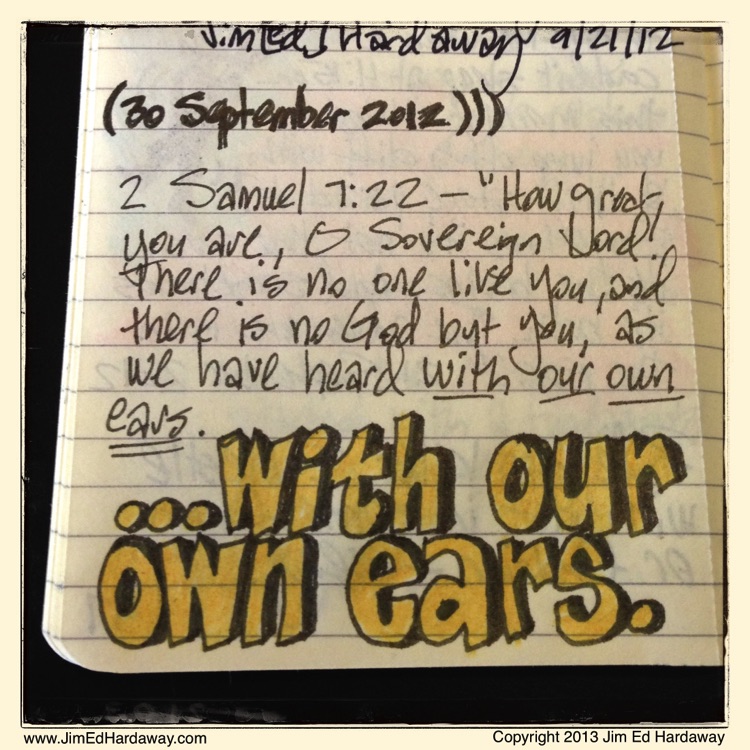 Jim [Ed] Hardaway 9/21/12
(30 September 2012)))
2 Samuel 7:22 – "How great
you are, O Sovereign Lord!
There is no one like you, and
there is no God but you, as
we have heard with our own
ears.
...with our
own ears.
www.JimEdHardaway.com
Copyright 2013 Jim Ed Hardaway